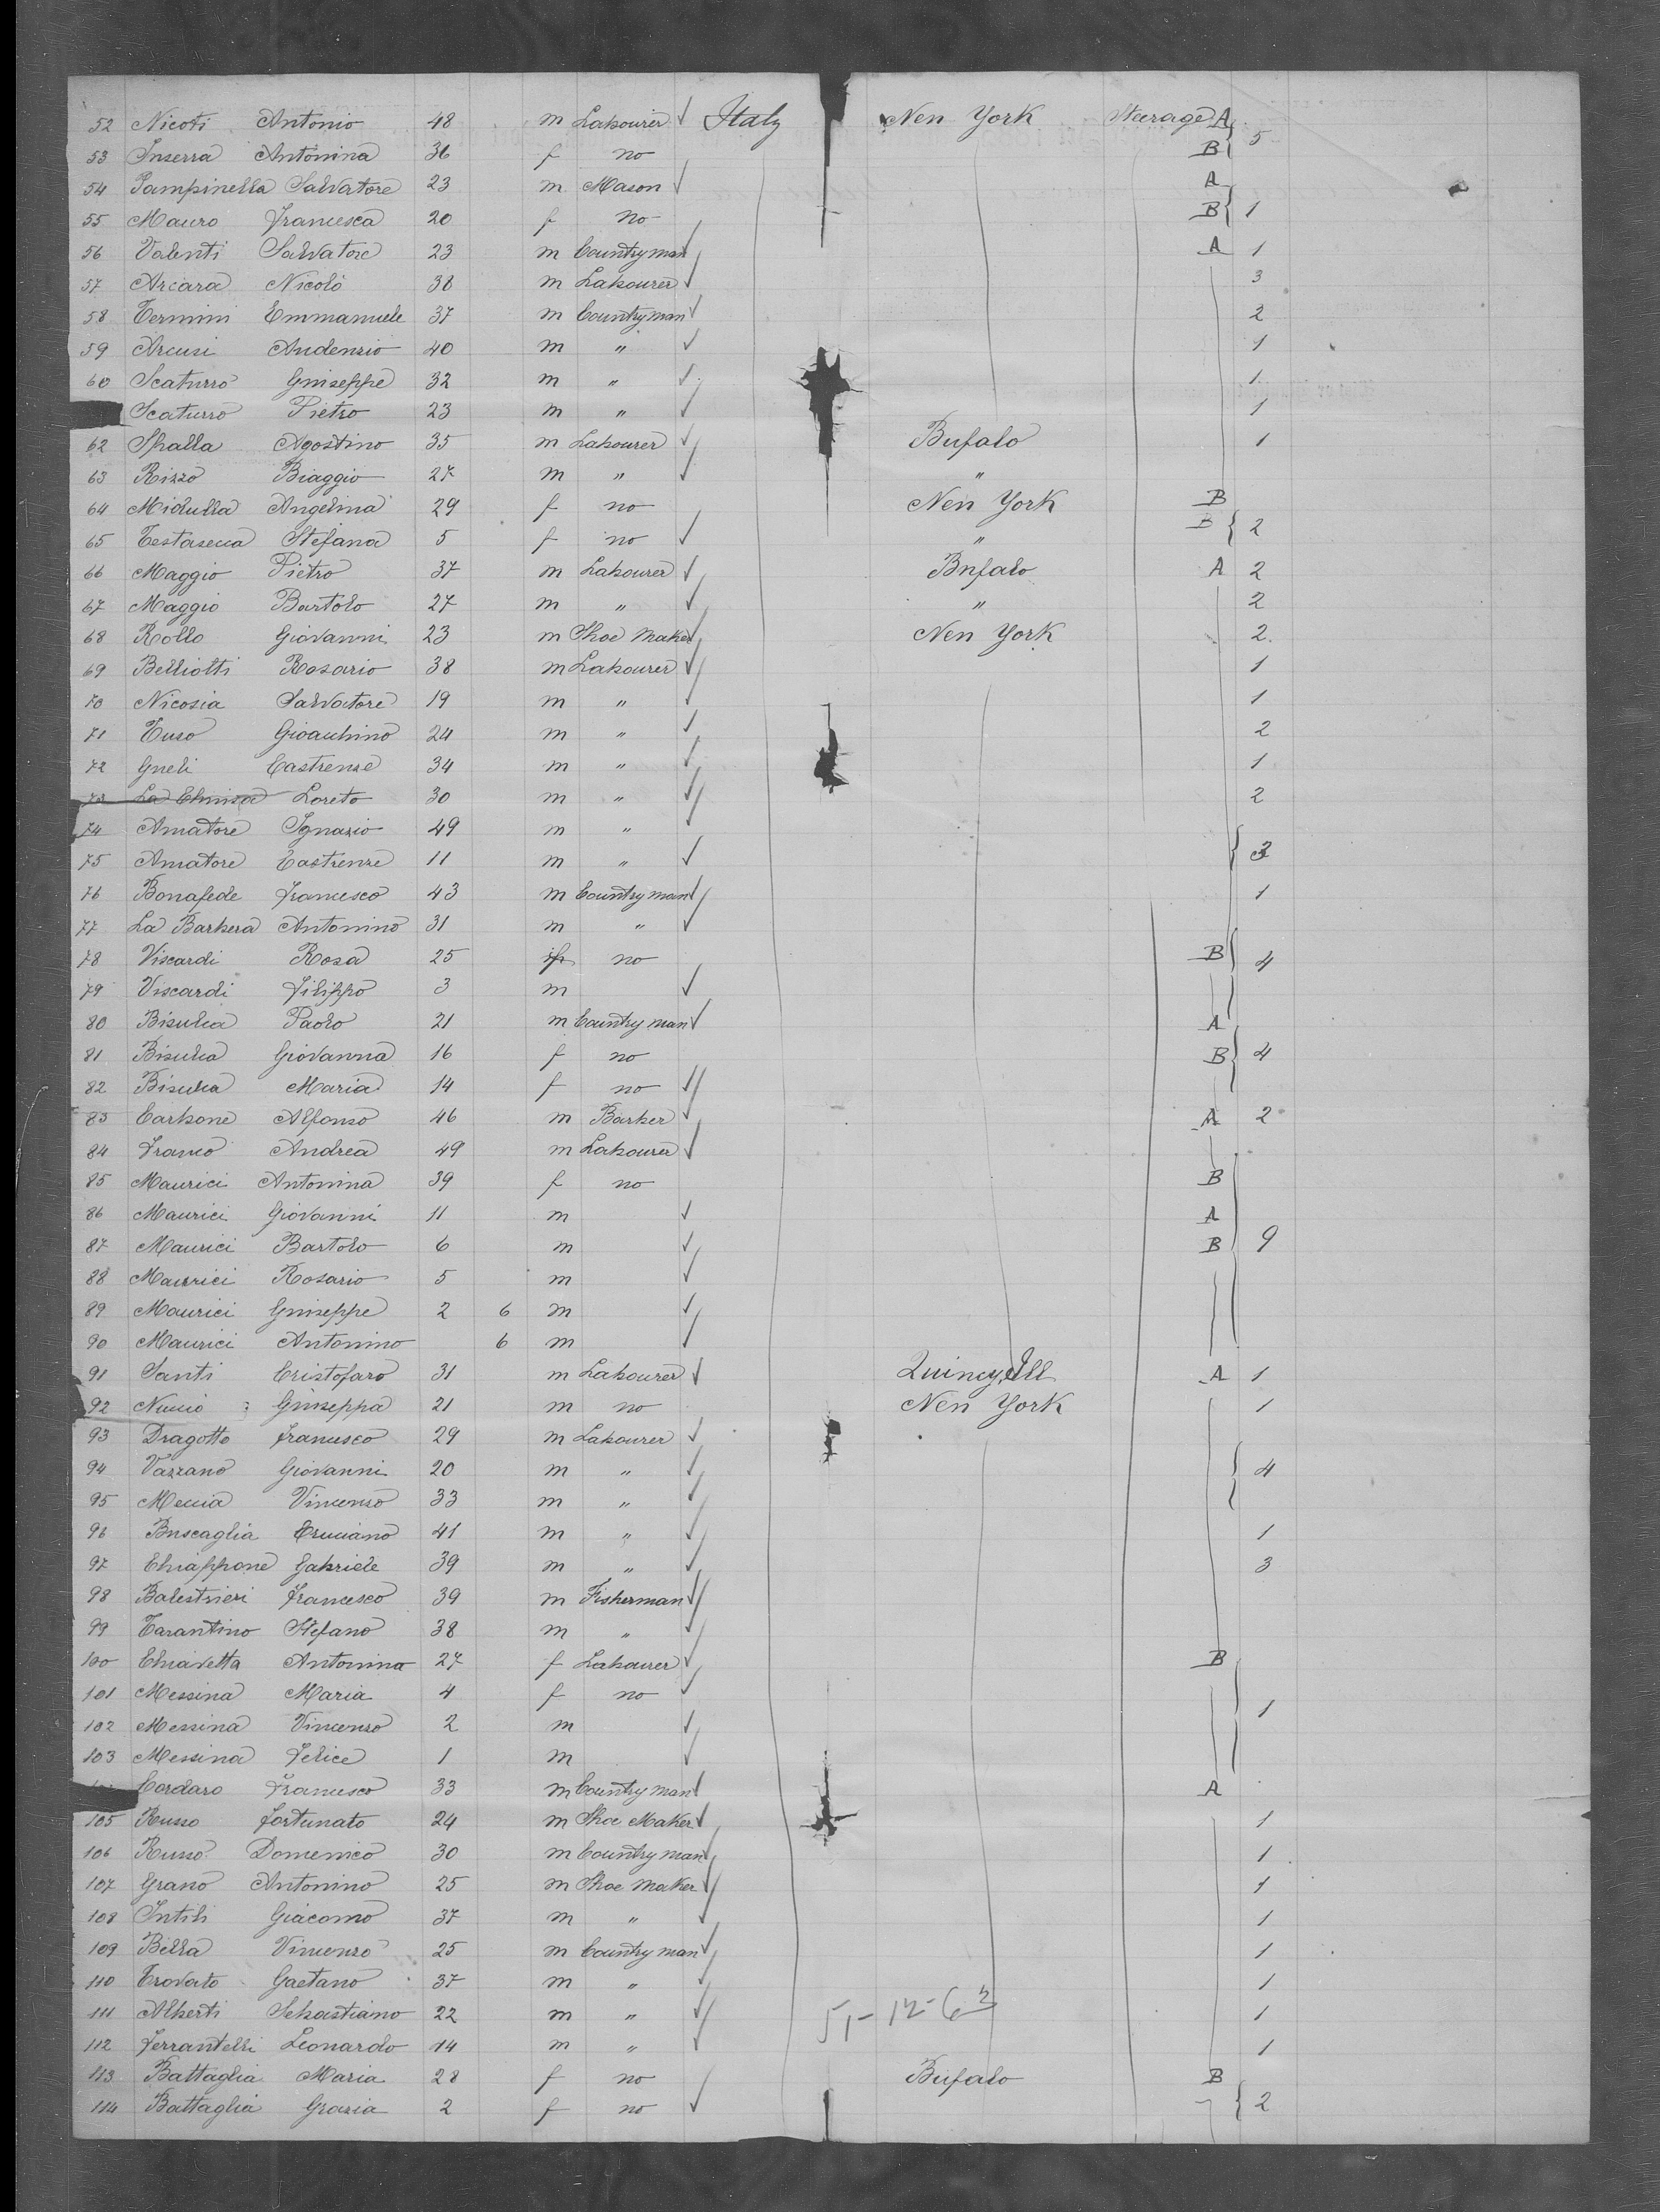 52 Nicoti Antonio 48 m Labourer ✓ Italy New York Steerage A 5
53 Inserra Antonina 36 f no B
54 Pampinella Salvatore 23 m Mason ✓ A
55 Mauro Francesca 20 f no B 1
56 Valenti Salvatore 23 m Countryman ✓ A 1
57 Arcara Nicolò 38 m Labourer ✓ 3
58 Termini Emmanuele 37 m Countryman ✓ 2
59 Arcusi Audenzio 40 m " ✓ 1
60 Scaturro Guiseppe 32 m " ✓ 1
Scaturro Pietro 23 m " ✓ 1
62 Spalla Agostino 35 m Labourer ✓ Bufalo 1
63 Rizzo Biaggio 27 m " ✓ "
64 Midulla Angelina 29 f no New York B
65 Testasecca Stefana 5 f no ✓ " B 2
66 Maggio Pietro 37 m Labourer ✓ Bufalo A 2
67 Maggio Bartolo 27 m " ✓ " 2
68 Rollo Giovanni 23 m Shoe Maker ✓ New York 2
69 Belliotti Rosario 38 m Labourer ✓ 1
70 Nicosia Salvatore 19 m " ✓ 1
71 Tuso Gioachino 24 m " ✓ 2
72 Gueli Castrenze 34 m " ✓ 1
73 La Chiusa Loreto 30 m " ✓ 2
74 Amatore Ignazio 49 m " ✓
75 Amatore Castrenze 11 m " ✓ 3
76 Bonafede Francesco 43 m Countryman ✓ 1
77 La Barbera Antonino 31 m " ✓
78 Viscardi Rosa 25 f no B 4
79 Viscardi Filippo 3 m ✓
80 Bisulca Paolo 21 m Country man ✓ A
81 Bisulca Giovanna 16 f no B 4
82 Bisulca Maria 14 f no ✓
83 Carbone Alfonso 46 m Barber ✓ A 2
84 Franco Andrea 49 m Labourer ✓
85 Maurici Antonina 39 f no B
86 Maurici Giovanni 11 m ✓ A
87 Maurici Bartolo 6 m ✓ B 9
88 Maurici Rosario 5 m ✓
89 Maurici Guiseppe 2 6 m ✓
90 Maurici Antonino 6 m ✓
91 Santi Cristofaro 31 m Labourer ✓ Quincy Ill A 1
92 Nuccio Giuseppa 21 m no New York 1
93 Dragotto Francesco 29 m Labourer ✓
94 Vazzano Giovanni 20 m " ✓ 4
95 Meccia Vincenzo 33 m " ✓
96 Buscaglia Cruciano 41 m " ✓ 1
97 Chiappone Gabriele 39 m " ✓ 3
98 Balestrieri Francesco 39 m Fisherman ✓
99 Tarantino Stefano 38 m " ✓
100 Chiavetta Antonina 27 f Labourer ✓ B
101 Messina Maria 4 f no ✓
102 Messina Vincenzo 2 m ✓ 1
103 Messina Felice 1 m ✓
Cordaro Francesco 33 m Country man ✓ A
105 Russo Fortunato 24 m Shoe Maker ✓ 1
106 Russo Domenico 30 m Country man ✓ 1
107 Grano Antonino 25 m Shoe Maker ✓ 1
108 Intili Giacomo 37 m " ✓ 1
109 Bella Vincenzo 25 m Country man ✓ 1
110 Trovato Gaetano 37 m " ✓ 1
111 Alberti Sebastiano 22 m " ✓ 1
112 Ferrantelli Leonardo 14 m " ✓ 1
113 Battaglia Maria 28 f no Bufalo B
114 Battaglia Grazia 2 f no ✓ 2